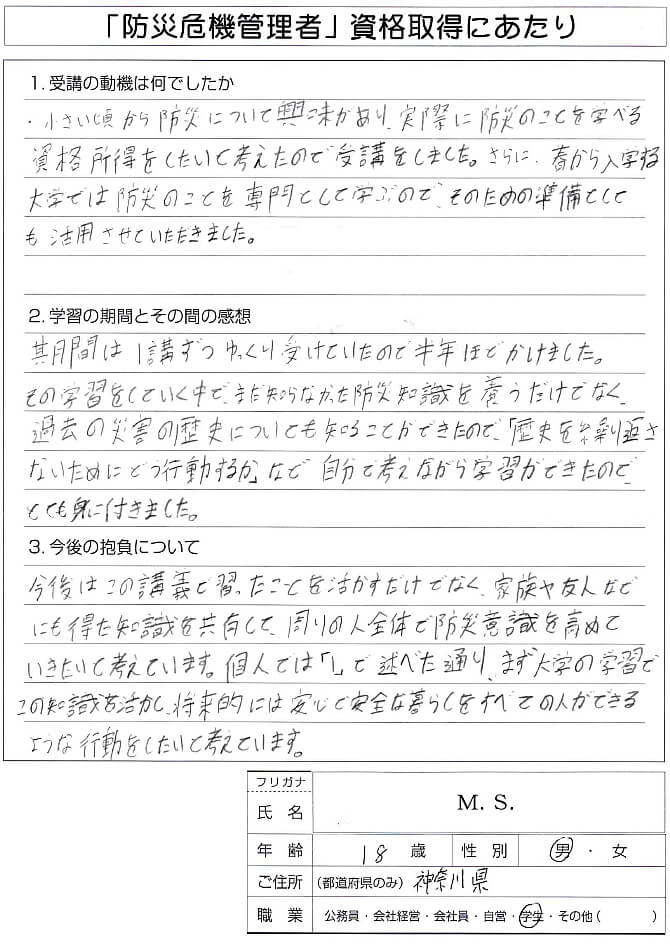 「防災危機管理者」資格取得にあたり
1. 受講の動機は何でしたか
・小さい頃から防災について興味があり、実際に防災のことを学べる
資格所得をしたいと考えたので受講をしました。さらに、春から入学する
大学では防災のことを専門として学ぶので、そのための準備として
も活用させていただきました。
2. 学習の期間とその間の感想
期間は1講ずつゆっくり受けていたので半年ほどかけました。
その学習をしていく中で、まだ知らなかった防災知識を養うだけでなく、
過去の災害の歴史についても知ることができたので、「歴史を繰り返さ
ないためにどう行動するか」など自分で考えながら学習ができたので、
とても身に付きました。
3. 今後の抱負について
今後はこの講義で習ったことを活かすだけでなく、家族や友人など
にも得た知識を共有して、周りの人全体で防災意識を高めて
いきたいと考えています。個人では「1」で述べた通り、まず大学の学習で
この知識を活かし、将来的には安心で安全な暮らしをすべての人ができる
ような行動をしたいと考えています。
フリガナ
氏名 M. S.
年齢 18 歳 性別 男・女
ご住所 (都道府県のみ) 神奈川県
職業 公務員・会社経営・会社員・自営・学生・その他( )